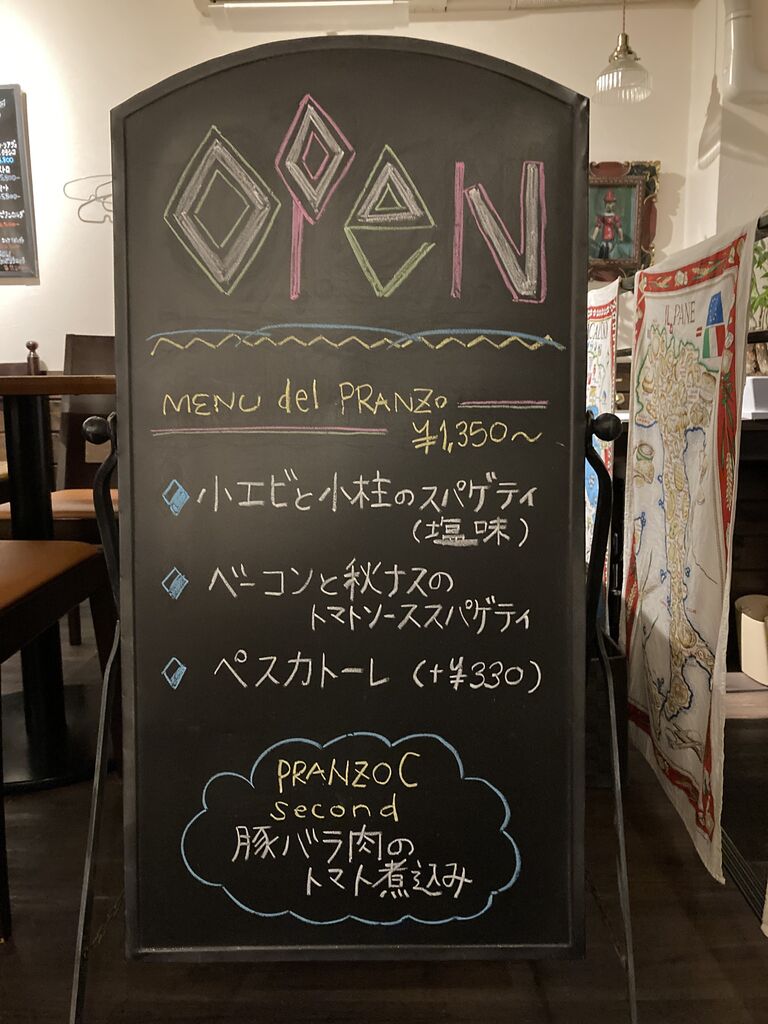 OPEN
MENU del PRANZO
¥1,350〜
小エビと小柱のスパゲティ
(塩味)
ベーコンと秋ナスの
トマトソーススパゲティ
ペスカトーレ (+¥330)
PRANZO C
second
豚バラ肉の
トマト煮込み
IL PANE